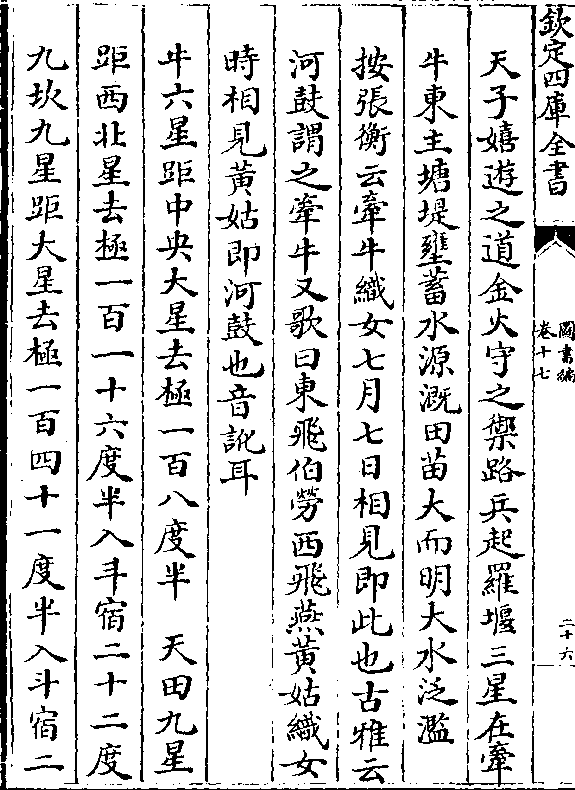 欽定四庫全書
圖書編
卷十七
二十六
天子嬉遊之道金火守之禦路兵起羅堰三星在牽
牛東主塘堤壅蓄水源溉田苗大而明大水泛濫
按張衡云牽牛織女七月七日相見即此也古雅云
河鼓謂之牽牛又歌曰東飛伯勞西飛燕黃姑織女
時相見黃姑即河鼓也音訛耳
牛六星距中央大星去極一百八度半 天田九星
距西北星去極一百一十六度半入斗宿二十二度
九坎九星距大星去極一百四十一度半入斗宿二